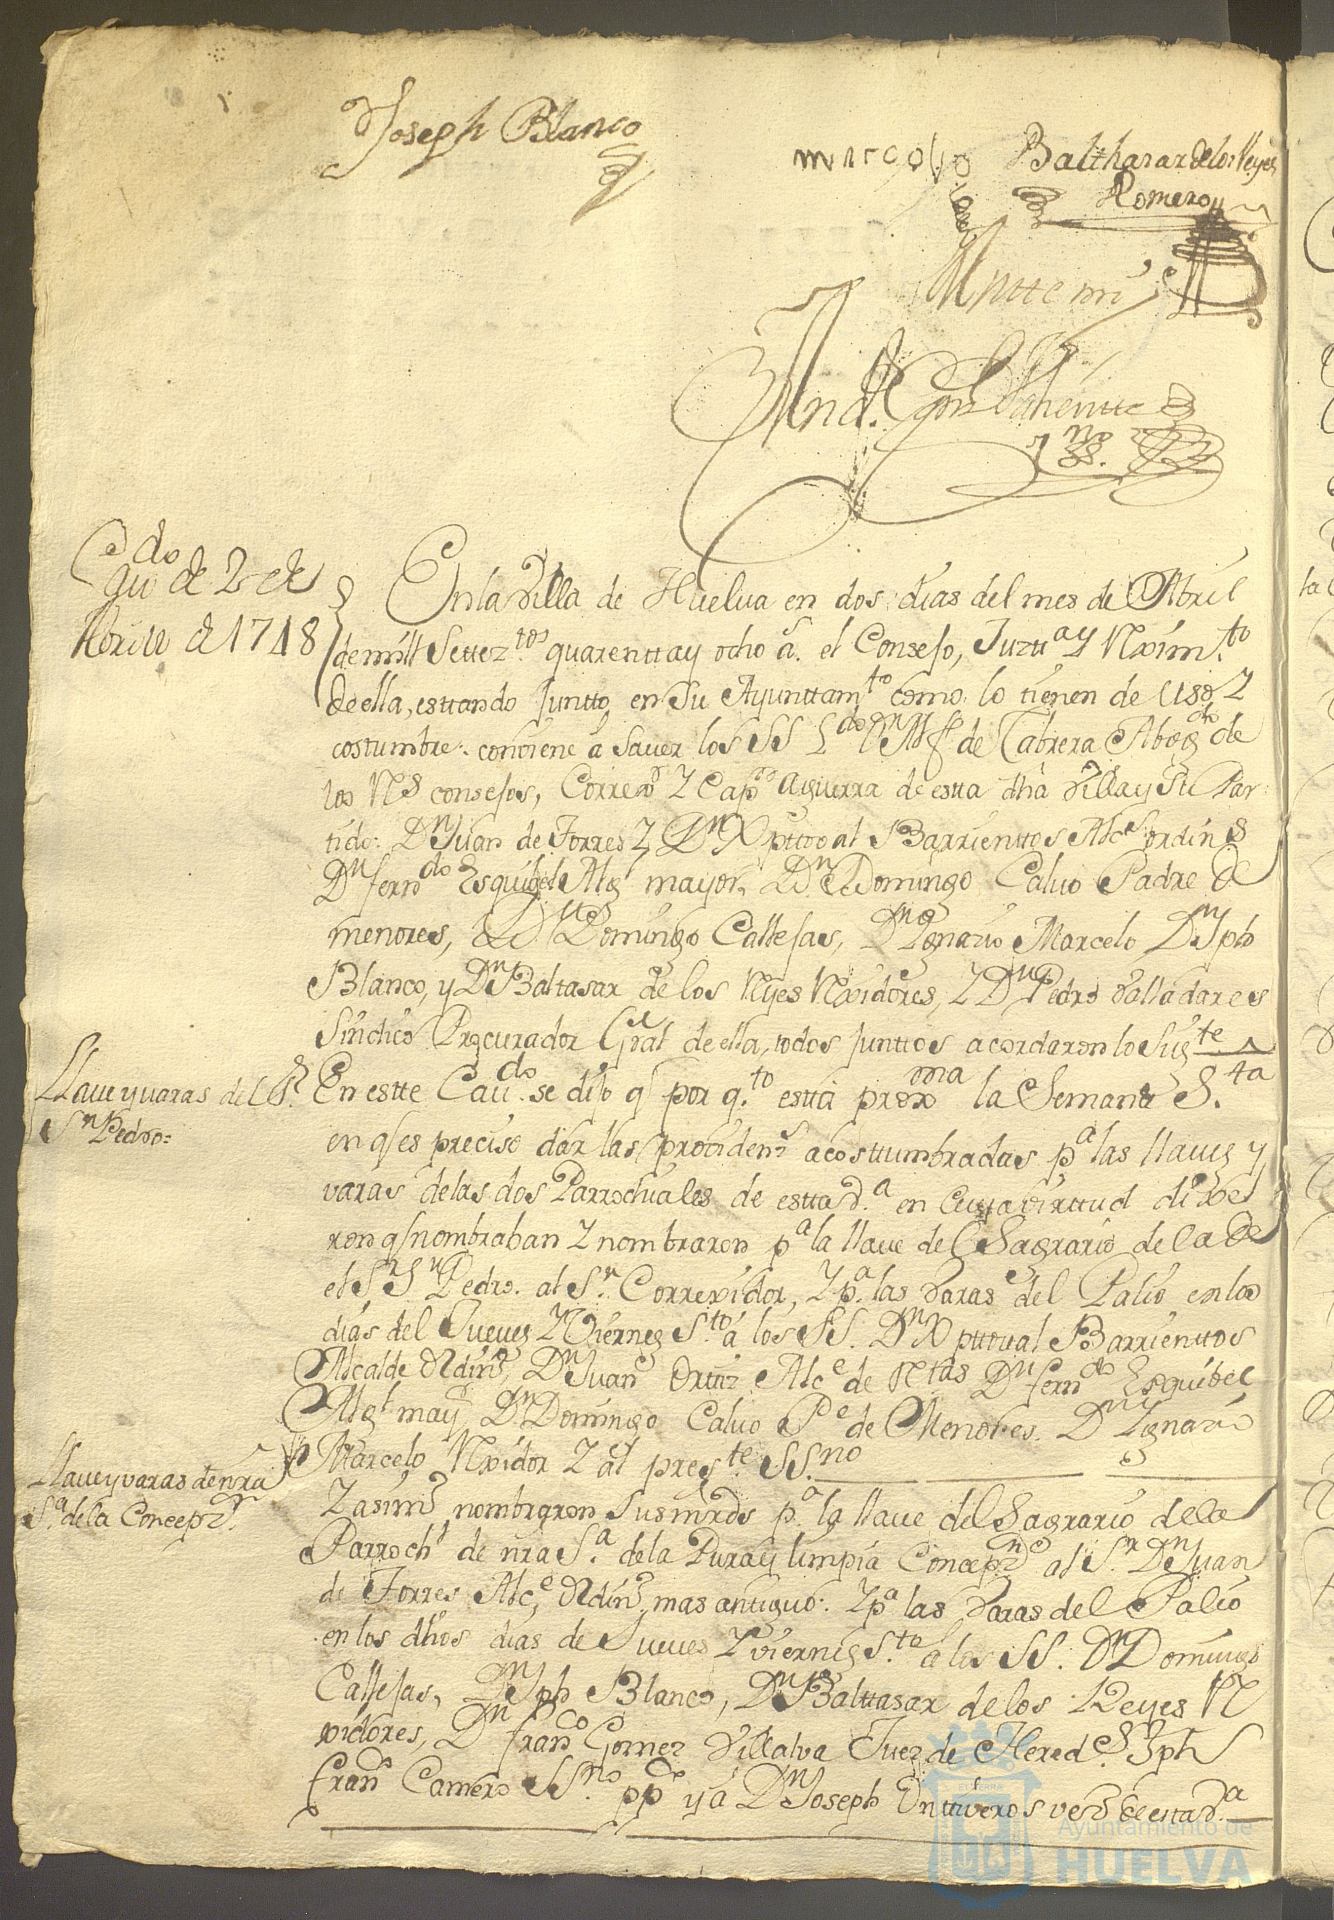 Joseph Blanco
Balthasar de los Reyes
Romero
Antte mi
And.
Cau.do de 2 de
Abrill de 1748
En la Villa de Huelva en dos dias del mes de Abril
de mill Settez.tos quarentta y ocho a.s el Consejo, Justt.a y Reximi.to
de ella, esttando juntto en su Ayunttam.to como lo tienen de uso y
costumbre: conviene a saver los SS L.do Dn de Cabrera Abog.do de
los R.s consejos, Correx.or y Cap.n a guerra de estta dha Villa y su Par
tido: Dn Juan de Torres y Dn Xpttoval Barrienttos Alc.es ordin.s
Dn fern.do Esquibel Alg.l mayor, Dn Domingo Calvo Padre de
menores, Dn Domingo Callejas, Dn Ygnacio Marcelo, Dn Jph
Blanco, y Dn Baltasar de los Reyes Rexidores, y Dn Pedro Valladares
Sindico Procurador Gral de ella, todos junttos acordaron lo sig.te
Llave y varas del S.r
S.n Pedro=
En estte Cau.do se dijo q por q.to estta proxma la Semana S.ta
en q es preciso dar las providen.s acosttumbradas p.a las llaves y
varas de las dos Parrochiales de estta V.a en cuya virttud dixe
ron q nombraban y nombraron p.a la llave del Sagrario de la de
el S.r S.n Pedro. al S.r Correxidor, y p.a las Varas del Palio en los
dias del Jueves y Viernes S.to a los SS. Dn Xpttoval Barrienttos
Alcalde Ordin.o, Dn Juan Ortiz Alc.e de Dn fern.do Esquibel
Alg.l may.r, Dn Domingo Calvo P.e de Menores. Dn Ygnacio
Marcelo Rexidor y al pres.te SS.no
Llave y varas de nra
S.a de la Concepz.n
Y asim.o nombraron sus mrds p.a la llave del Sagrario de la
Parroch.l de nra S.a de la Pura y limpia Concepz.n al S.r Dn Juan
de Torres Alc.e Ordin.o mas antiguo. y p.a las Varas del Palio
en los dhos dias de Jueves y viernes S.to a los SS. Dn Domingo
Callejas, Dn Jph Blanco, Dn Balttasar de los Reyes Re
xidores, Dn fran.co Gomez Villalva Juez de Hered.s Jph
fran.co Camero SS.no pp.co y a Dn Joseph Onttiveros vez.o de esta V.a
Ayuntamiento de
HUELVA